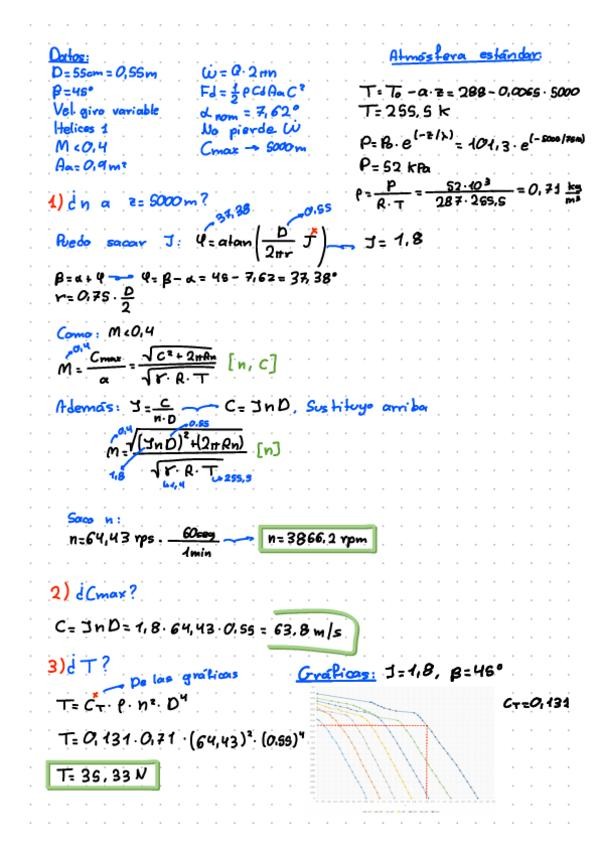 Datos:
D=55cm=0,55m
β=45°
Vel giro variable
Helices 1
M<0,4
Aa=0,9m²
Ẇ=Q·2πn
Fd=½ρCdAaC²
α nom=7,62°
No pierde Ẇ
Cmax → 5000m
Atmósfera estándar
T=T₀-a·z=288-0,0065·5000
T=255,5 k
P=P₀·e^(-z/λ)=101,3·e^(-5000/75m)
P=52 kPa
ρ=P/(R·T)=52·10³/(287·255,5)=0,71 kg/m³
1) ¿n a z=5000m?
37,38 0.55
Puedo sacar J: φ=atan(D/(2πr) J) → J=1,8
β=α+φ → φ=β-α=45-7,62=37,38°
r=0,75·D/2
Como: M<0,4
0,4
M=Cmax/a=√(C²+2πRn)/√(γ·R·T) [n, C]
Además: J=C/(n·D) → C=JnD, Sustituyo arriba
0,4 0.55
M=√((JnD)²+(2πRn))/√(γ·R·T) [n]
1,8 1,4 255,5
Saco n:
n=64,43 rps·60seg/1min → n=3866,2 rpm
2) ¿Cmax?
C=JnD=1,8·64,43·0.55=63,8 m/s
3) ¿T?
De las gráficas
T=C_T·ρ·n²·D⁴
T=0,131·0,71·(64,43)²·(0.55)⁴
T=35,33 N
Gráficas: J=1,8, β=45°
C_T=0,131